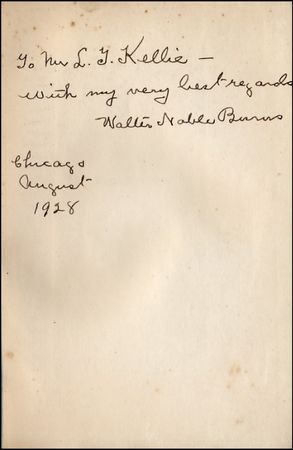 To Mr L. F. Kellie —
with my very best regards
Walter Noble Burns
Chicago
August
1928